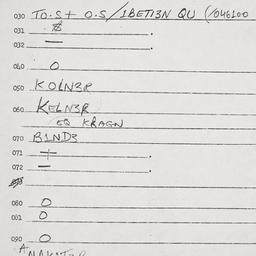 030 TO.S + O.S/1BETI3N QU (/046100
031 $ .
032 — .
040 O
050 KOLN3R
060 KELN3R
EQ KRAGN
070 B1ND3
071 + .
072 — .
080 O
081 O
090 O